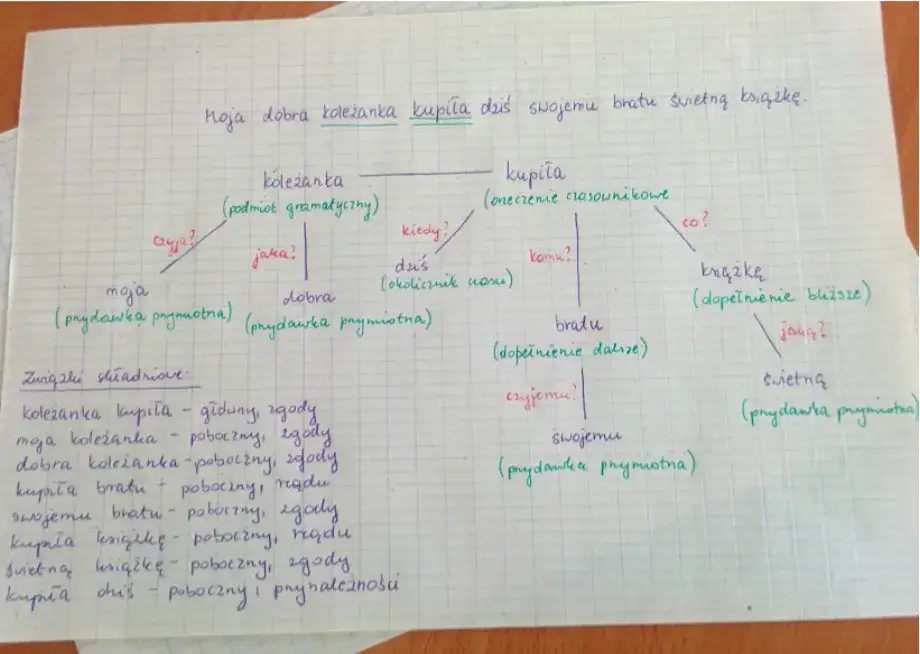 Moja dobra koleżanka kupiła dziś swojemu bratu świetną książkę.
koleżanka kupiła
(podmiot gramatyczny) (orzeczenie czasownikowe
czyja? jaka? kiedy? komu? co?
moja
(przydawka przymiotna)
dobra
(przydawka przymiotna)
dziś
(okolicznik czasu)
bratu
(dopełnienie dalsze)
czyjemu?
swojemu
(przydawka przymiotna)
książkę
(dopełnienie bliższe)
jaką?
świetną
(przydawka przymiotna)
Związki składniowe:
koleżanka kupiła - główny, zgody
moja koleżanka - poboczny, zgody
dobra koleżanka - poboczny, zgody
kupiła bratu - poboczny, rządu
swojemu bratu - poboczny, zgody
kupiła książkę - poboczny, rządu
świetną książkę - poboczny, zgody
kupiła dziś - poboczny, przynależności